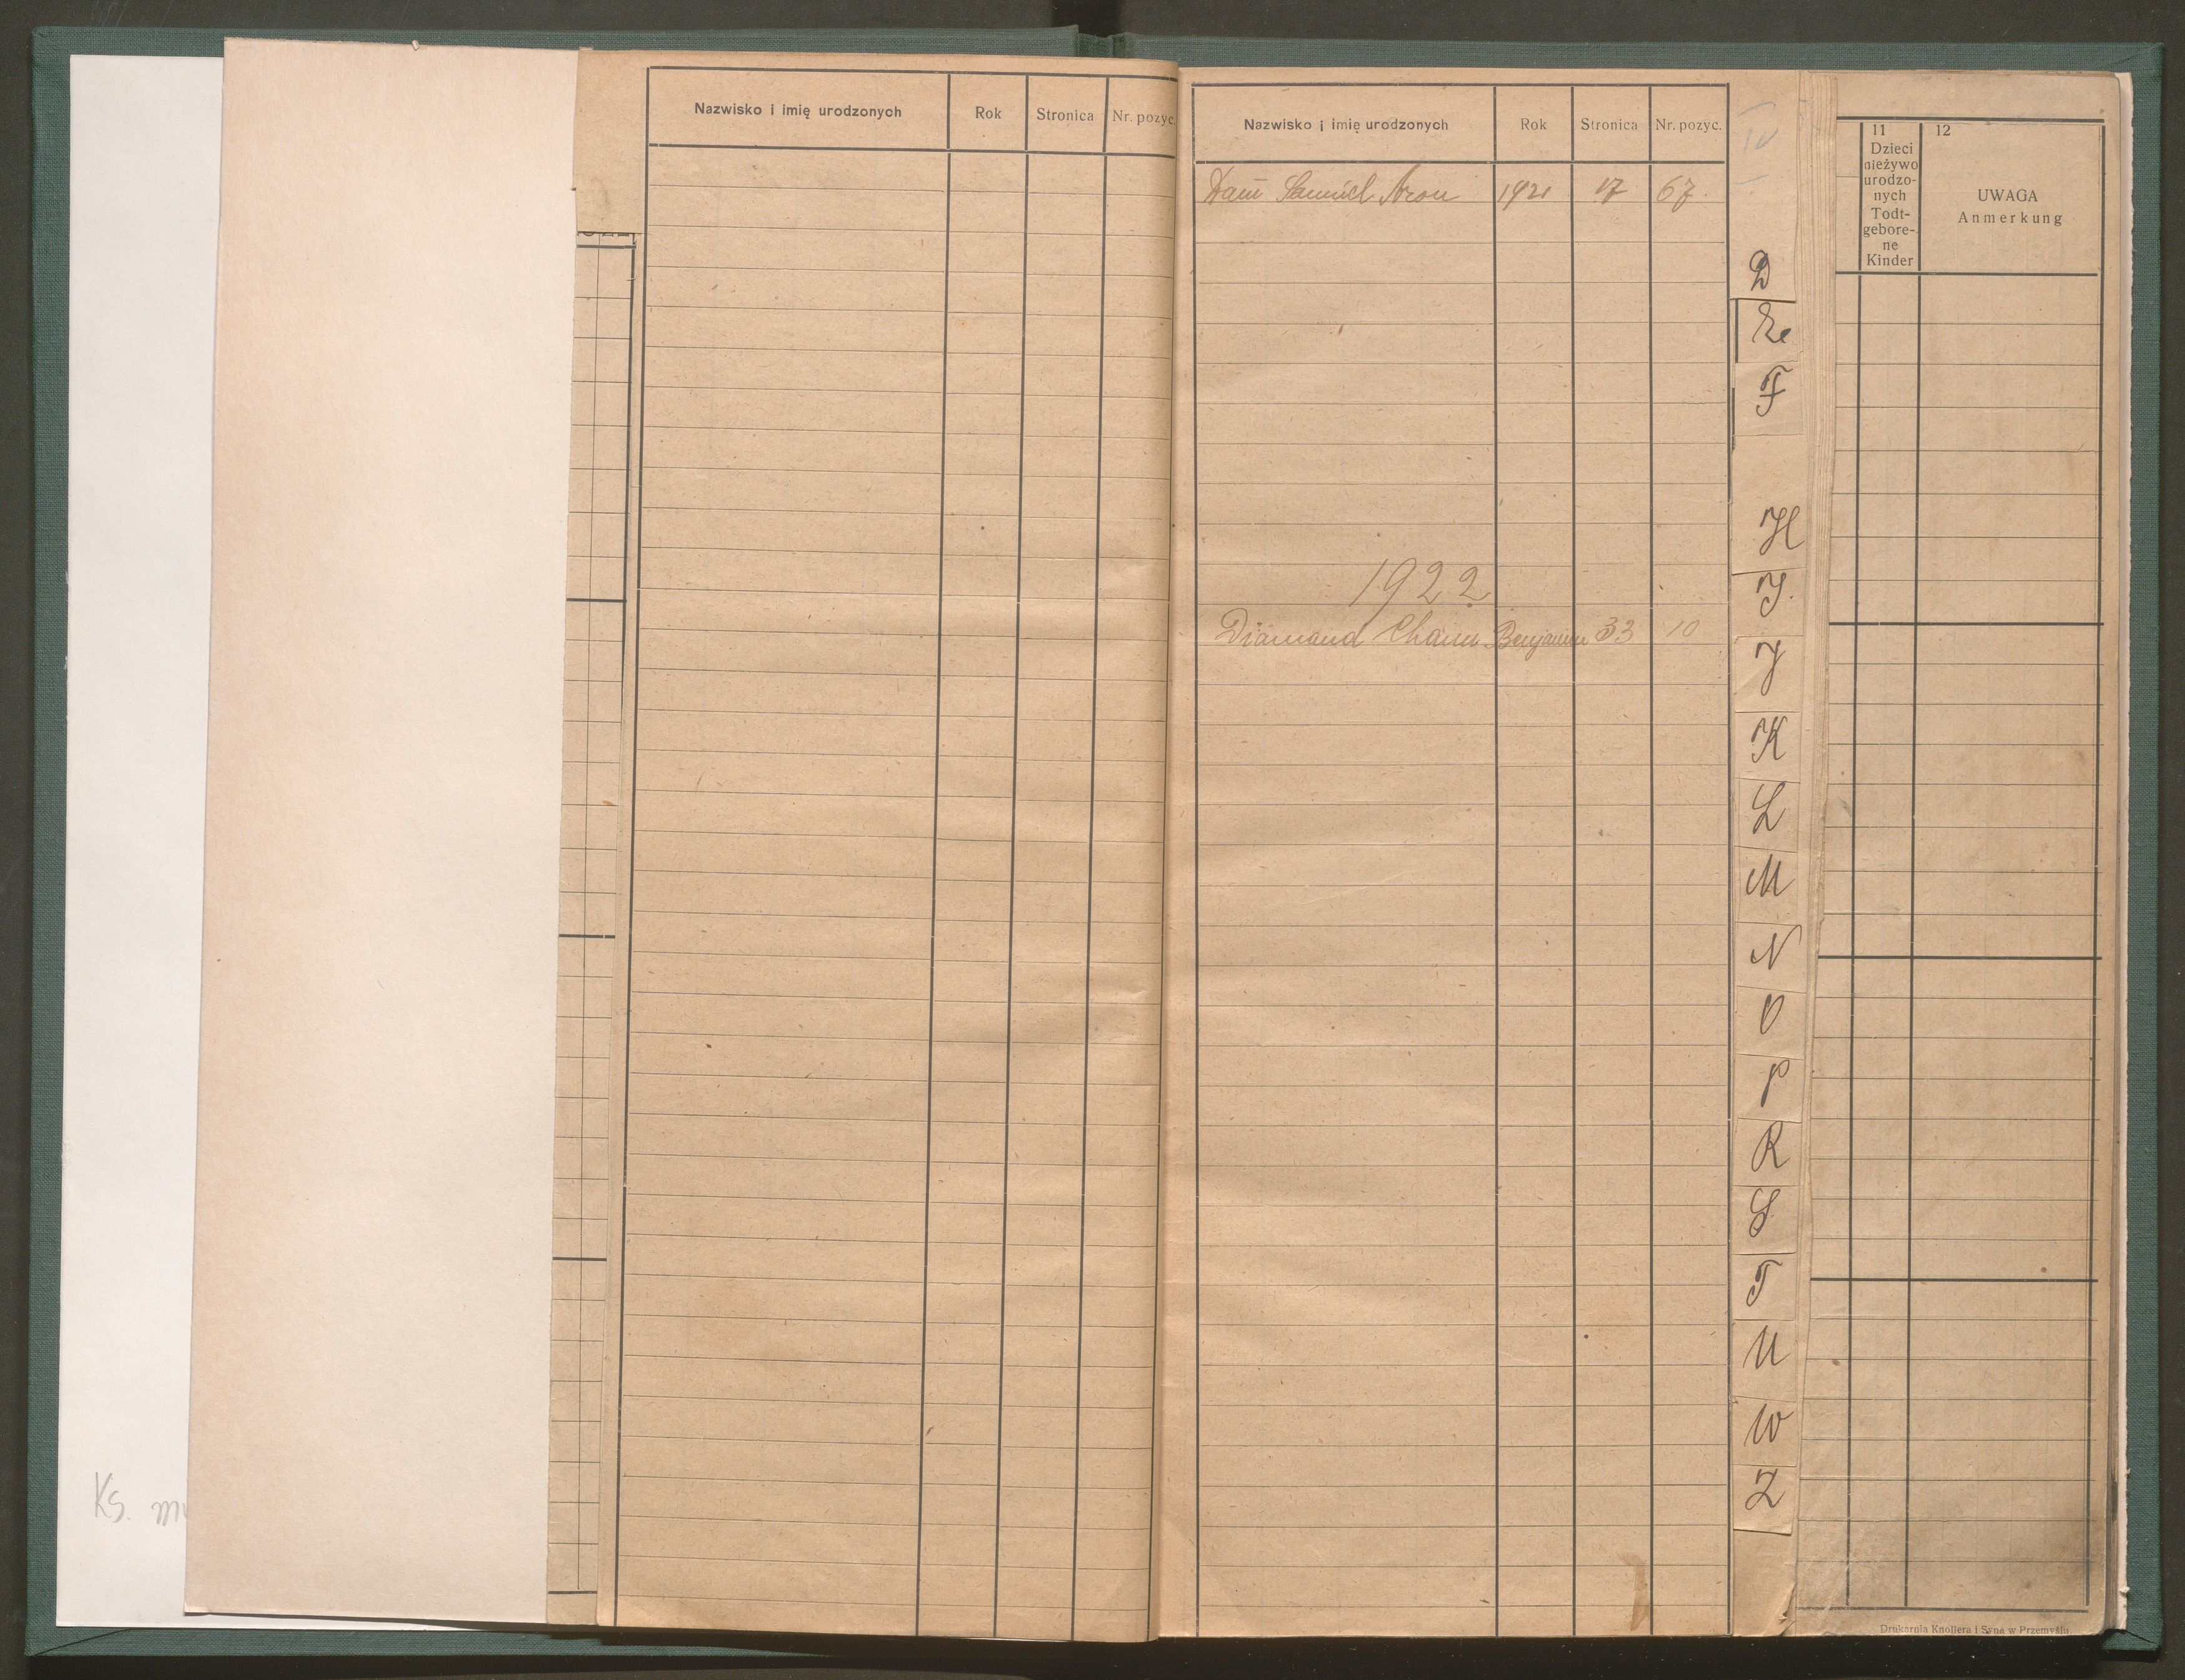 Nazwisko i imię urodzonych Rok Stronica Nr. pozyc.
Nazwisko i imię urodzonych Rok Stronica Nr. pozyc.
Samuel Aron 1921 17 67.
1922
Diamand Chaim Benjamin 33 10
D
F
H
I.
J
K
L
M
N
O
P
R
S
T
U
W
Z
11
Dzieci
nieżywo
urodzo-
nych
Todt-
gebore-
ne
Kinder
12
UWAGA
Anmerkung
Ks.
Drukarnia Knollera i Syna w Przemyślu.